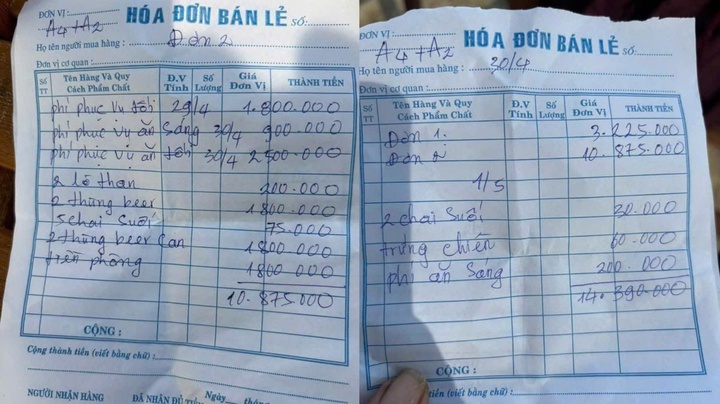 ĐƠN VỊ :
A4+A2
HÓA ĐƠN BÁN LẺ Số:
Họ tên người mua hàng : Đơn 2
Đơn vị cơ quan :
Số TT Tên Hàng Và Quy Cách Phẩm Chất Đ.V Tính Số Lượng Giá Đơn Vị THÀNH TIỀN
phí phục vụ tối 29/4 1.800.000
phí phục vụ ăn sáng 30/4 900.000
phí phục vụ ăn tối 30/4 2500.000
2 lô than 200.000
2 thùng beer 1800.000
5 chai suối 75.000
2 thùng beer can 1800.000
tiền phòng 1800.000
10.875.000
CỘNG :
Cộng thành tiền (viết bằng chữ) :
Ngày tháng
NGƯỜI NHẬN HÀNG ĐÃ NHẬN ĐỦ
ĐƠN VỊ :
A4+A2
HÓA ĐƠN BÁN LẺ Số:
Họ tên người mua hàng : 30/4
Đơn vị cơ quan :
Số TT Tên Hàng Và Quy Cách Phẩm Chất Đ.V Tính Số Lượng Giá Đơn Vị THÀNH TIỀN
Đơn 1: 3.225.000
Đơn 2 10.875.000
1/5
2 chai suối 30.000
trứng chiên 60.000
phí ăn sáng 200.000
14.390.000
CỘNG :
(viết bằng chữ) :